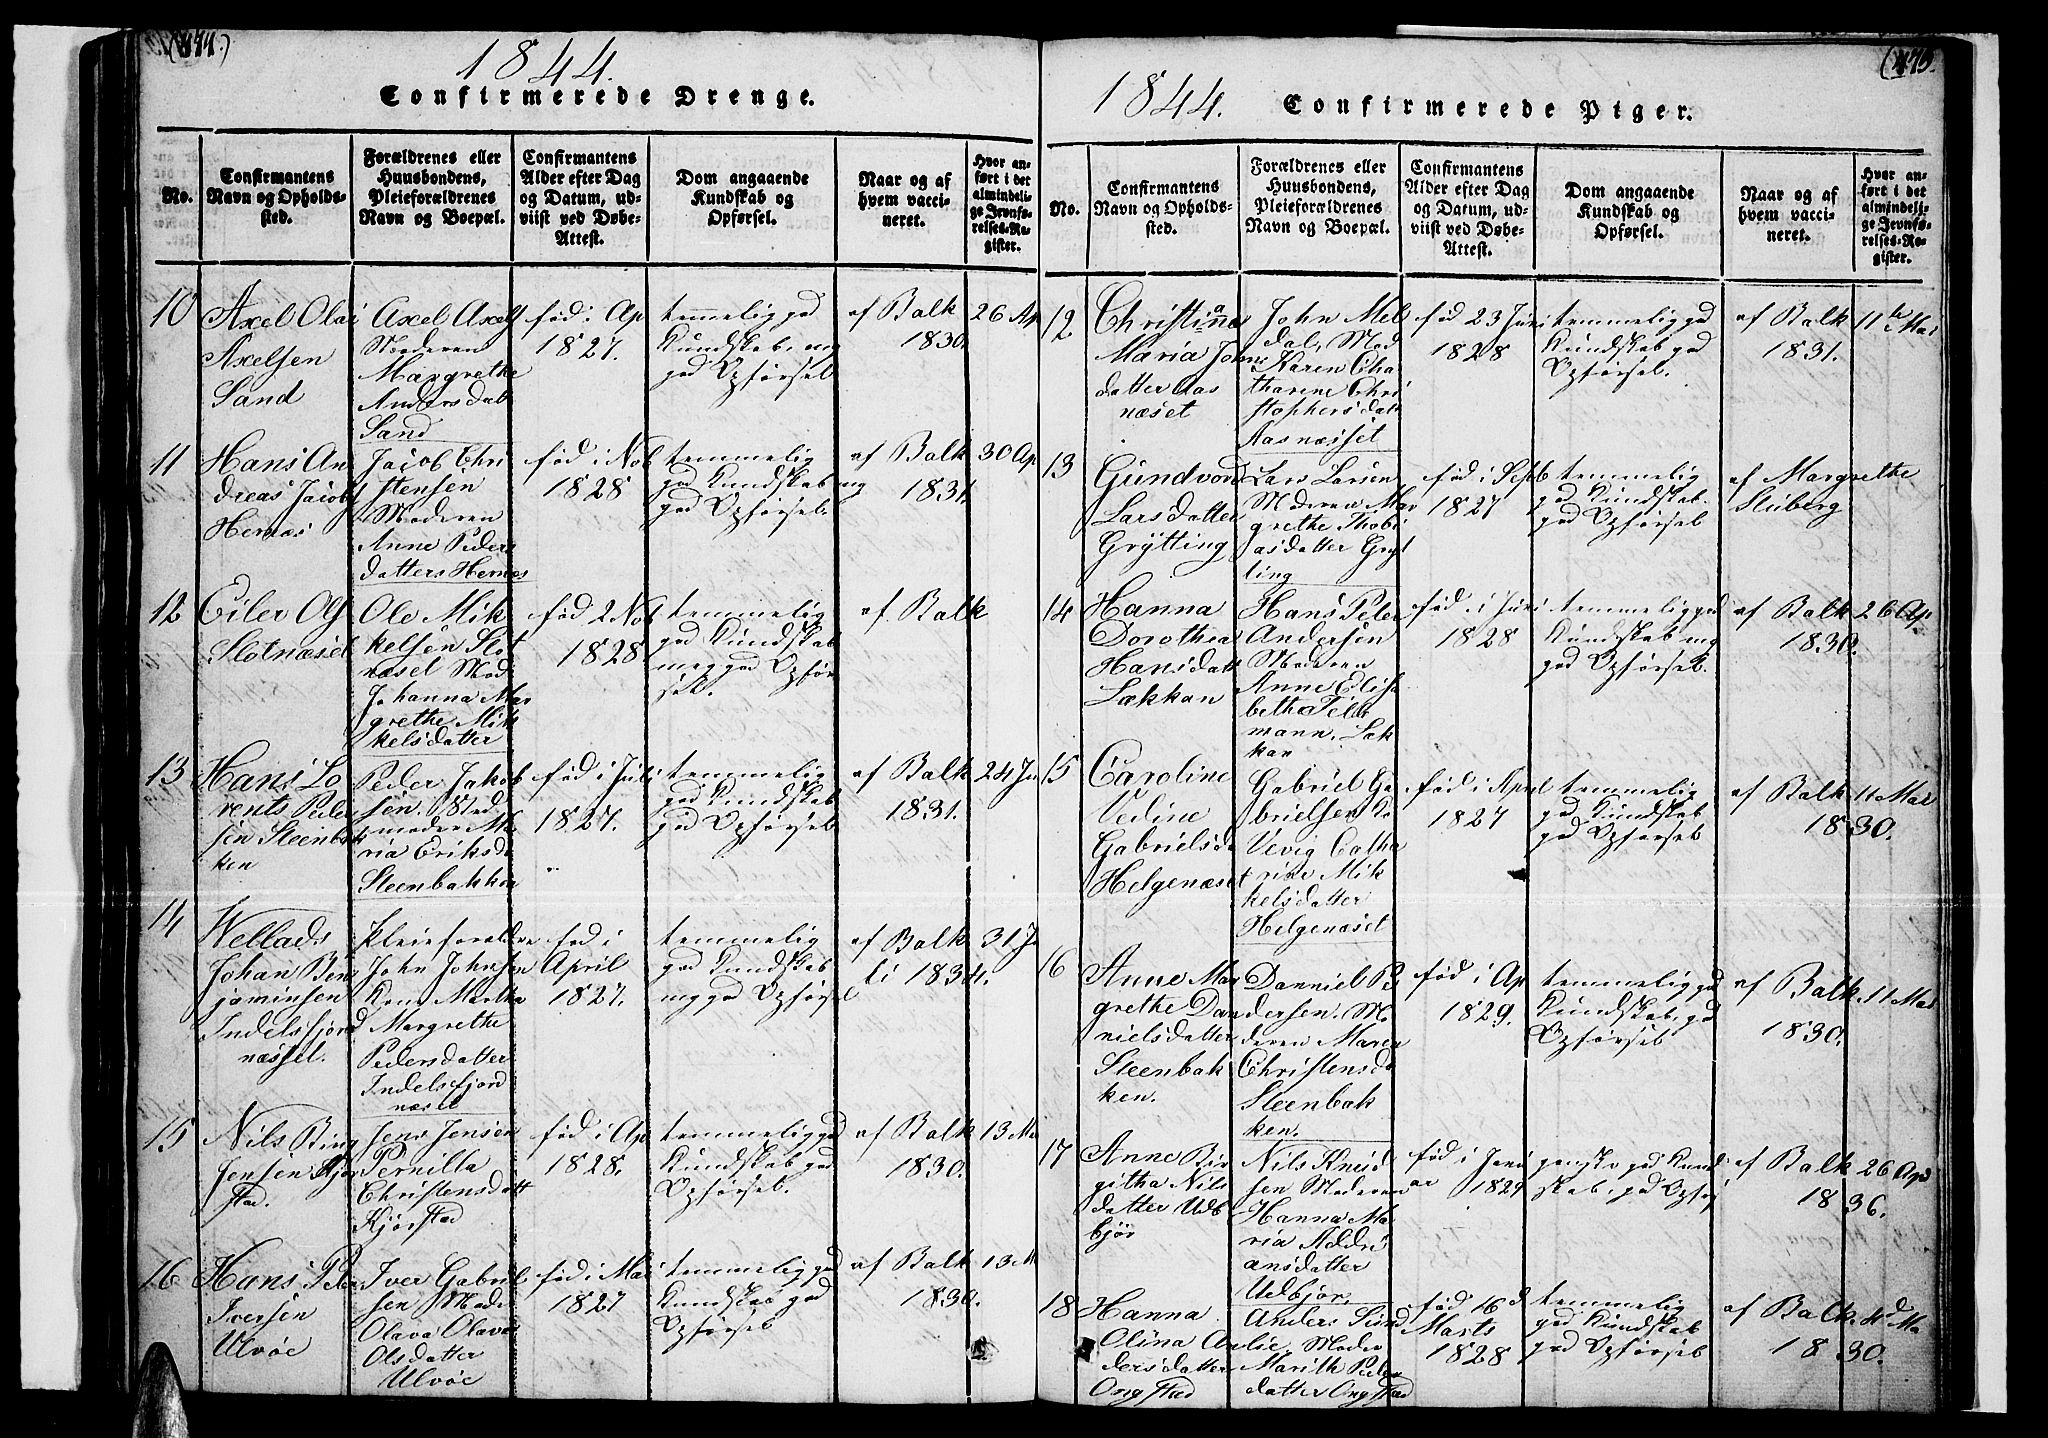 1844.
Confirmerede Drenge.
No.
Confirmantens Navn og Opholds-sted.
Forældrenes eller Huusbondens, Pleieforældrenes Navn og Boepæl.
Confirmantens Alder efter Dag og Datum, ud-viist ved Døbe-Attest.
Dom angaaende Kundskab og Opførsel.
Naar og af hvem vacci-neret.
Hvor an-ført i det almindeli-ge Jevnfø-relses-Re-gister.
10
Axel Olai
Axelsen
Sand
Axel Axels
Moderen
Margrethe
Andersdatt
Sand
fød i Ap
1827.
temmelig god
Kundskab, og
god Opførsel
af Balk
1830.
26 Ap
11
Hans An
dreas Jacobs
Hernæs
Jacob Chri
stensen
Moderen
Anne Peders
datters Hernæs
fød i Nob
1828
temmelig
god Kundskab og
god Opførsel.
af Balk
1831.
30 Ap
12
Eiler Ols
Slotnæset
Ole Mik
kelsen Slot
næset Mod
Johanna Mar
grethe Mik
kelsdatter
fød 2 Nob
1828
temmelig
god Kundskab
meg god Opfør
sel.
af Balk
13
Hans Lo
rents Peder
sen Steenbak
ken
Peder Jakob
sen. Sted
moder Ma
ria Eriksda
Steenbakken
fød i Juli
1827.
temmelig
god Kundskab
god Opførsel
af Balk
1831.
24 Ju
14
Wellads
Johan Ben
jaminsen
Indelsfjord
næsset.
Pleieforældre
John Johnsen
Kone Martha
Margrethe
Pedersdatter
Indelsfjord
næset
fød i
April
1827.
temmelig
god Kundskab
og god Opførsel
af Balk
li 1834.
31 Ju
15
Nils Bing
Jensen Kjør
stad.
Jens Jensen
Pernilla
Christensdatt
Kjørstad
fød i Ap
1828.
temmelig god
Kundskab god
Opførsel.
af Balk
1830.
13 Ma
16
Hans Peter
Iversen
Ulvøe
Iver Gabriel
sen Mode
Olava Olava
Olsdatter
Ulvøe
fød i Mai
1827
temmelig god
Kundskab god
Opførsel
af Balk
1830.
13 M
1844.
Confirmerede Piger.
No.
Confirmantens Navn og Opholds-sted.
Forældrenes eller Huusbondens, Pleieforældrenes Navn og Boepæl.
Confirmantens Alder efter Dag og Datum, ud-viist ved Døbe-Attest.
Dom angaaende Kundskab og Opførsel.
Naar og af hvem vacci-neret.
Hvor an-ført i det almindeli-ge Jevnfø-relses-Re-gister.
12
Christina
Maria Johns
datter Aas
næset
John Mel
dal, Mod
Karen Cha
tharine Chri
stophersdatt
Aasnæsset
fød 23 Juni
1828
temmelig god
Kundskab god
Opførsel.
af Balk
1831.
11te Mai
13
Gundvor
Larsdatter
Grytting
Lars Larsen
Moderen Mar
grethe Thobi
asdatter Gryt
ting
fød i Septb
1827
temmelig
god Kundskab.
god Opførsel
af Margrethe
Stuberg
14
Hanna
Dorothea
Hansdatt
Løkkan
Hans Peter
Andersen
Moderen
Anne Elisa
betha
mann. Løk
kan
fød i Juni
1828
temmelig god
Kundskab og
god Opførsel.
af Balk
1830.
26 Ap.
15
Caroline
Gabrielsda
Helgenæset
Gabriel Ga
brielsen K
Vevig Catha
rine Mik
kelsdatter
Helgenæset
fød i April
1827
temmelig
god Kundskab
god Opførsel
af Balk
1830.
11 Mai
16
Anne Mar
grethe Dan
nielsdatter
Steenbak
ken.
Danniel Pe
dersen. Mo
deren Maren
Christensda
Steenbak
ken.
fød i Ap
1829.
temmelig god
Kundskab, god
Opførsel
af Balk
1830.
11 Mai
17
Anne Bir
githa Nils
datter Udb
bjør
Nils Knud
sen Moderen
Hanna Ma
ria Addri
ansdatter
Udbjør,
fød i Janu
ar 1829
ganske god Kund
skab, god Opførs
af Balk
1836.
26 Ap
18
Hanna
Olina An
dersdatter
Ongstad
Anders Sund
lie, Moder
Marith Peder
datter Ongstad
fød 16d
Marts
1828
temmelig
god Kundskab
god Opførsel
af Balk
1830.
4d Ma